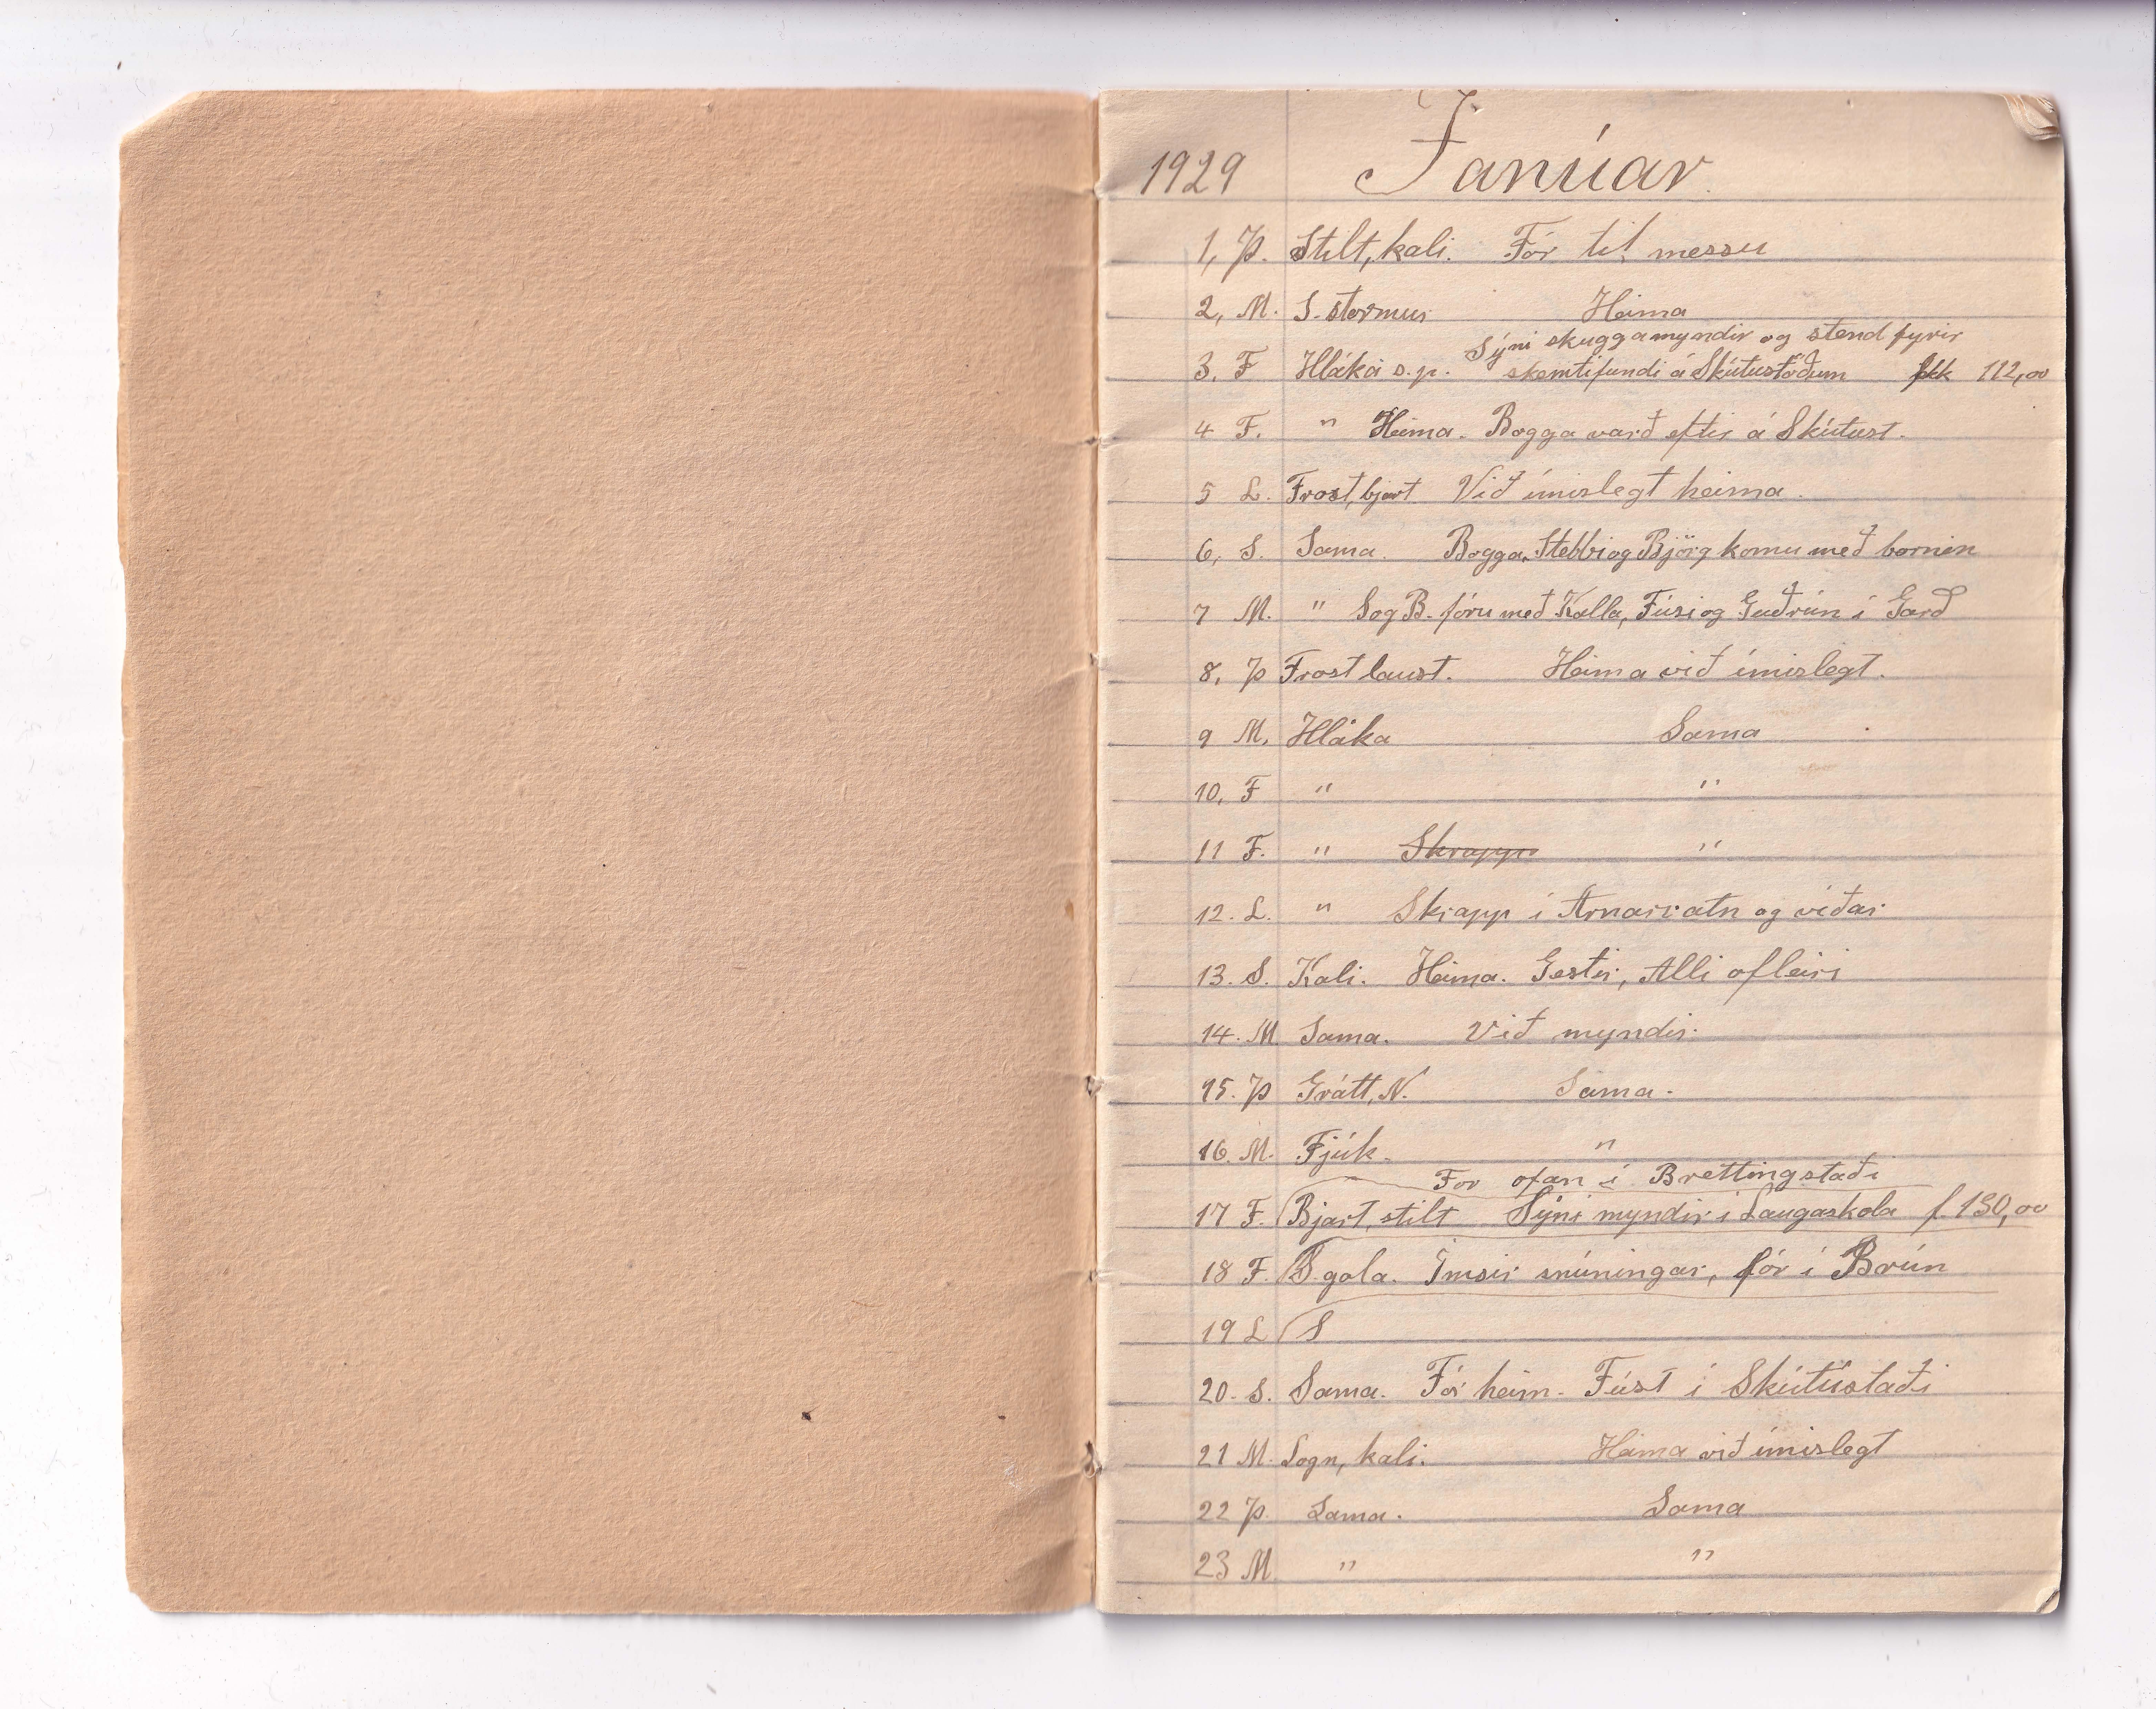 1929 Janúar
1, Þ. Stilt, kali. Fór til messu
2, M. S. stormur Heima
Sýni skuggamyndir og stend fyrir
3. F Hláka s.p. skemtifundi á Skútustöðum fkk 112,00
4 F. " Heima. Bogga varð eftir á Skútust.
5 L. Frost, bjart Við ímislegt heima.
6, S. Sama. Bogga, Stebbi og Björg komu með börnin
7 M. " S og B. fóru með Kalla, Fúsi og Guðrún í Garð
8, Þ Frostlaust. Heima við ímislegt.
9 M, Hláka Sama
10, F " "
11 F. " Skrapp "
12. L. " Skrapp í Arnarvatn og víðar
13. S. Kali. Heima. Gestir, Alli ofleiri
14. M Sama. Við myndir.
15. Þ Grátt, N. Sama.
16. M. Fjúk. "
For ofan í Brettingstaði
17 F. Bjart, stilt Sýni myndir í Laugaskola f. 130,00
18 F. S. gola. Ímsir snúningar, fór í Brún
19 L S
20. S. Sama. Fór heim. Fúst í Skútustaði
21 M. Logn, kali. Heima við ímislegt
22 Þ. Sama. Sama
23 M " "